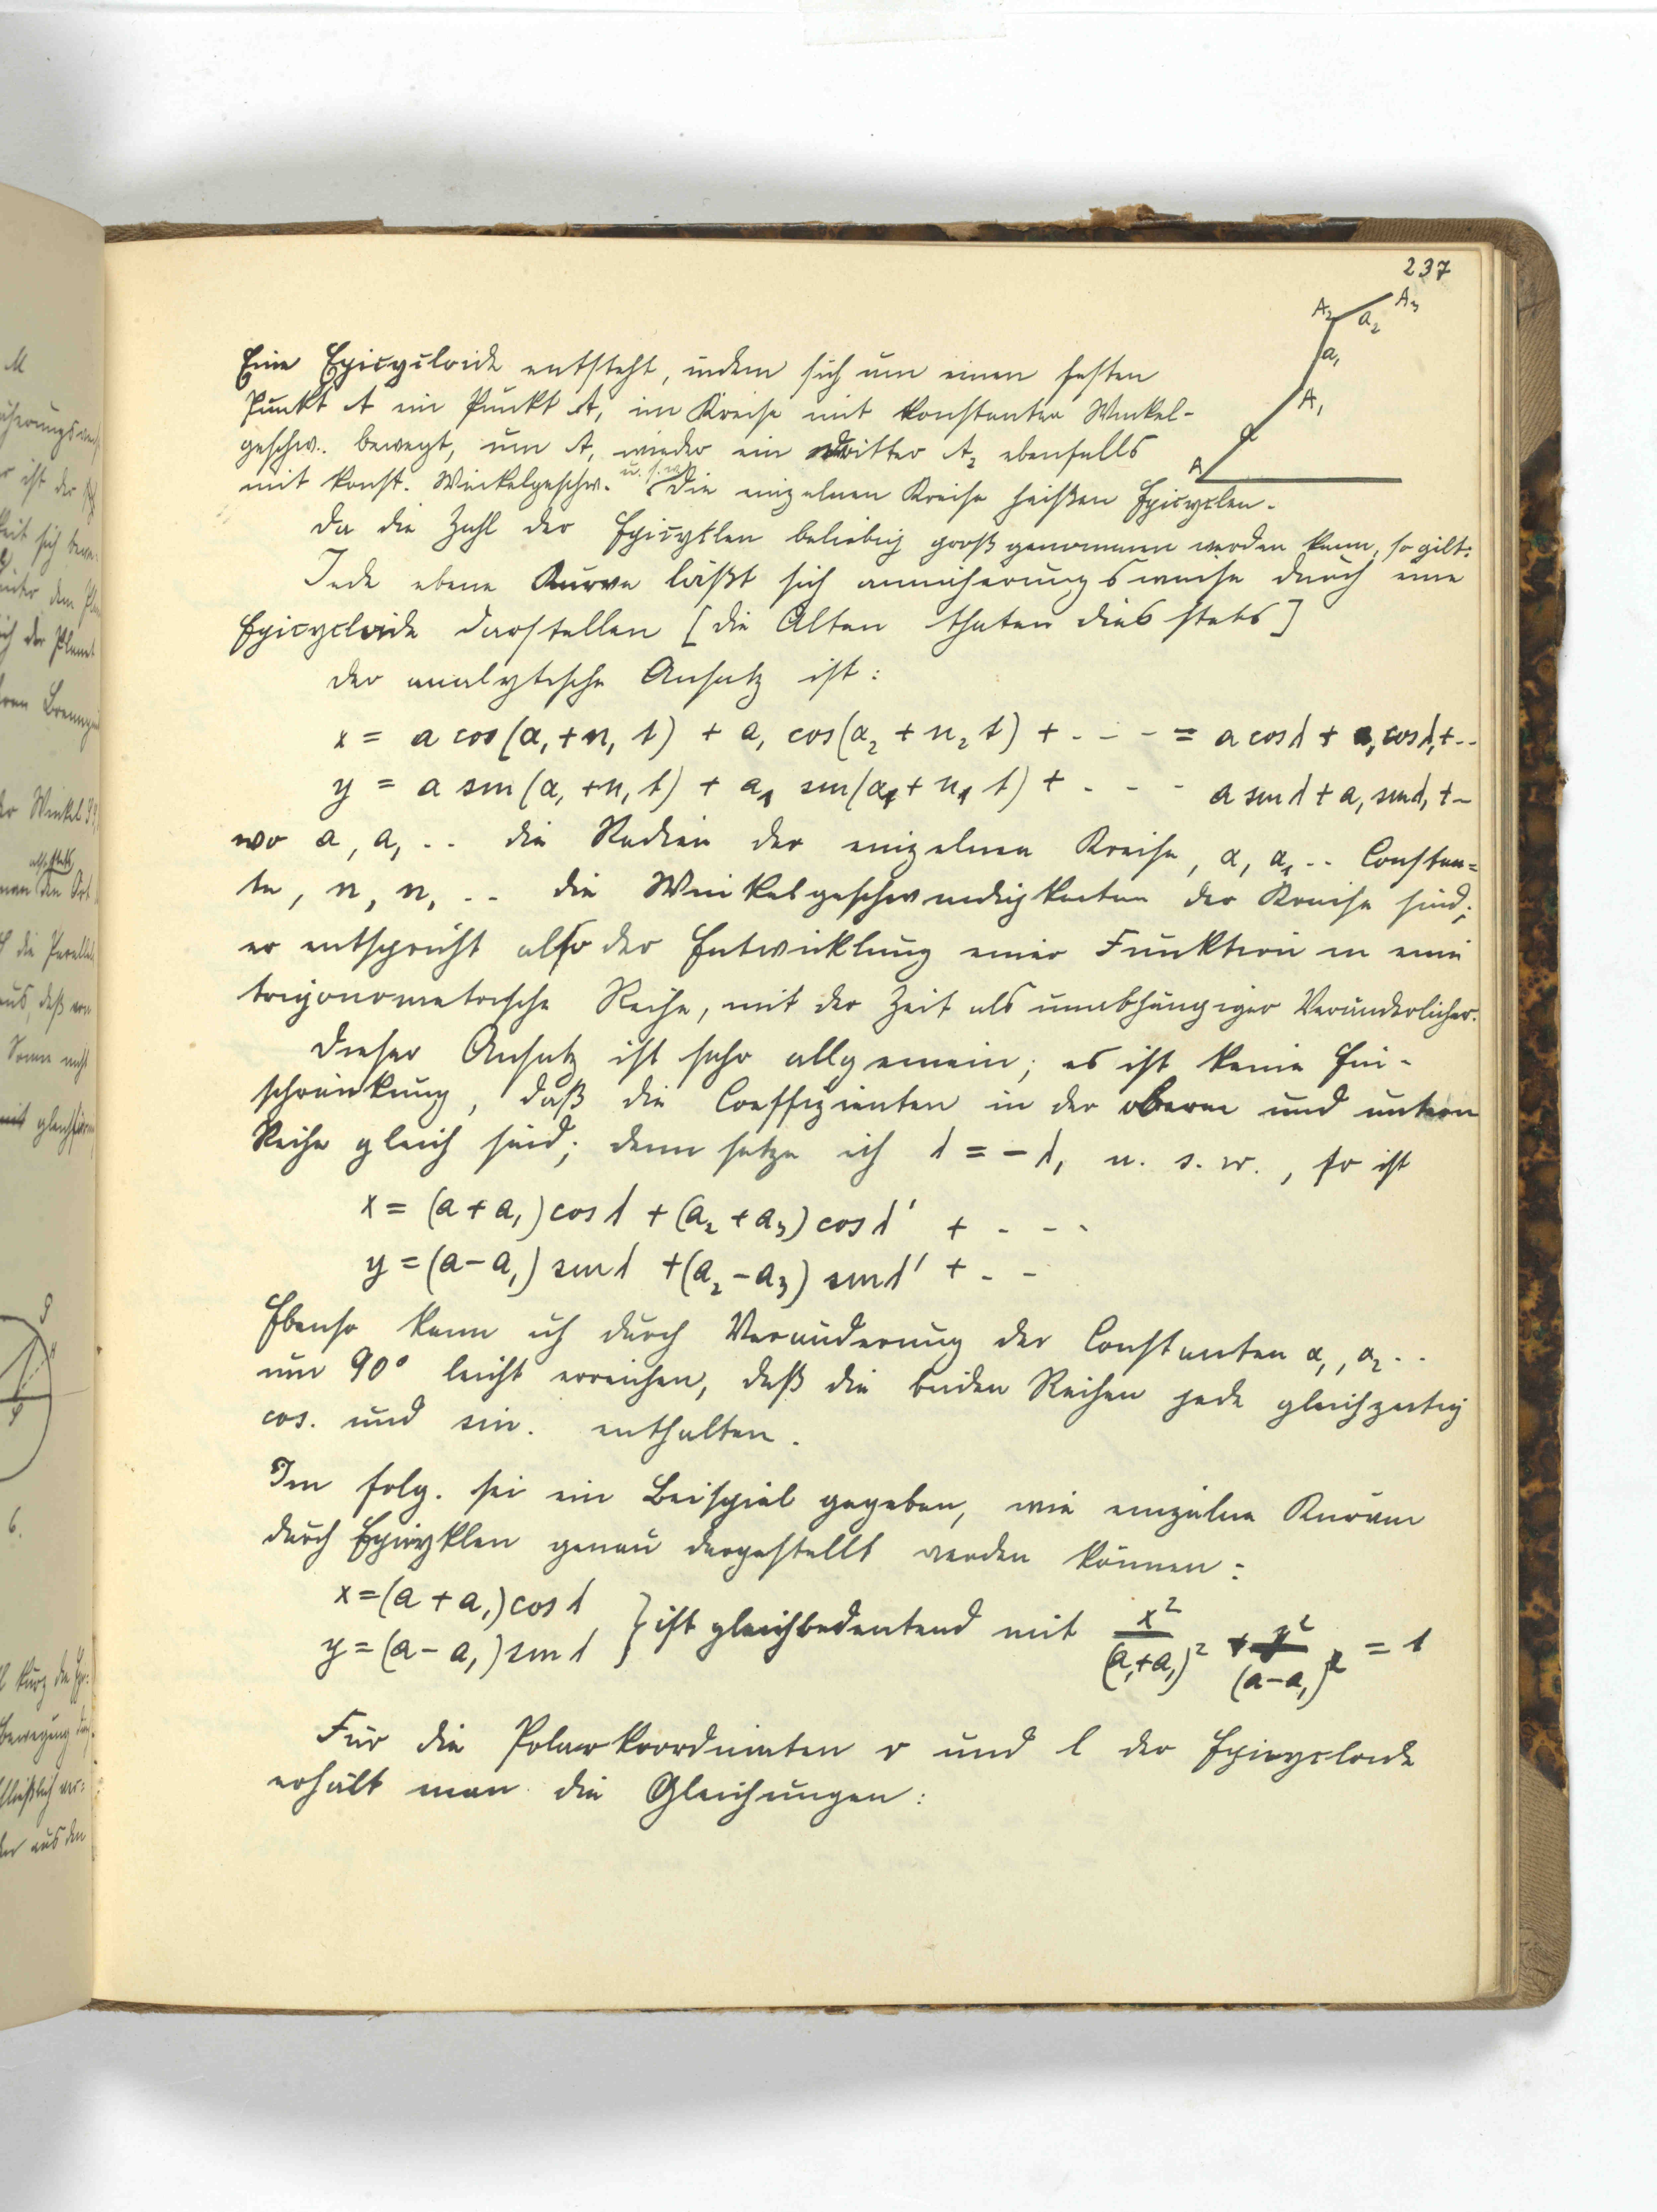 237
A₂ A₃
a₂
a₁
A₁
a
A
Eine Epicycloide entsteht, indem sich um einen festen
Punkt A ein Punkt A₁ im Kreise mit konstanter Winkel-
geschw. bewegt, um A₁ wieder ein dritter A₂ ebenfalls
mit konst. Winkelgeschw. u.s.w. Die einzelnen Kreise heißen Epicyclen.
Da die Zahl der Epicyklen beliebig groß genommen werden kann, so gilt:
Jede ebene Kurve läßt sich annäherungsweise durch eine
Epicycloide darstellen [die Alten thaten dies stets]
Der analytische Ansatz ist:
x = a cos(α₁ + n₁ t) + a₁ cos(α₂ + n₂ t) + - - - = a cos λ + a₁ cos λ₁ + --
y = a sin(α₁ + n₁ t) + a₁ sin(α₁ + n₁ t) + - - - a sin λ + a₁ sin λ₁ + -
wo a, a₁ .. die Radien der einzelnen Kreise, α, α₁ .. Constan=
te, n, n₁ .. die Winkelgeschwindigkeiten der Kreise sind;
er entspricht also der Entwicklung einer Funktion in eine
trigonometrische Reihe, mit der Zeit als unabhängiger Veränderlicher.
Dieser Ansatz ist sehr allgemein; es ist keine Ein-
schränkung, daß die Coeffizienten in der oberen und untern
Reihe gleich sind; denn setze ich λ = - λ₁ u. s. w., so ist
x = (a + a₁) cos λ + (a₂ + a₃) cos λ' + - - -
y = (a - a₁) sin λ + (a₂ - a₃) sin λ' + - -
Ebenso kann ich durch Veränderung der Constanten α₁, α₂ ..
um 90° leicht erreichen, daß die beiden Reihen jede gleichzeitig
cos. und sin. enthalten.
Im folg. sei ein Beispiel gegeben, wie einzelne Kurven
durch Epicyklen genau dargestellt werden können:
x = (a + a₁) cos λ
y = (a - a₁) sin λ } ist gleichbedeutend mit x²/(a+a₁)² + y²/(a-a₁)² = 1
Für die Polarkoordinaten r und l der Epicycloide
erhält man die Gleichungen: